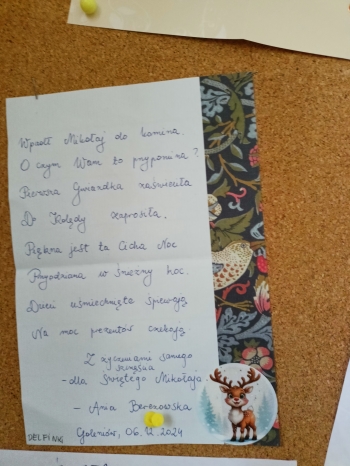 Wpadł Mikołaj do komina.
O czym Wam to przypomina?
Pierwsza Gwiazdka zaświeciła
Do Kolędy zaprosiła.
Piękna jest ta Cicha Noc
Przyodziana w śnieżny koc.
Dzieci uśmiechnięte śpiewają
Na moc prezentów czekają
Z życzeniami samego
szczęścia
-dla Świętego Mikołaja.
- Ania Berezowska
Goleniów, 06.12.2024